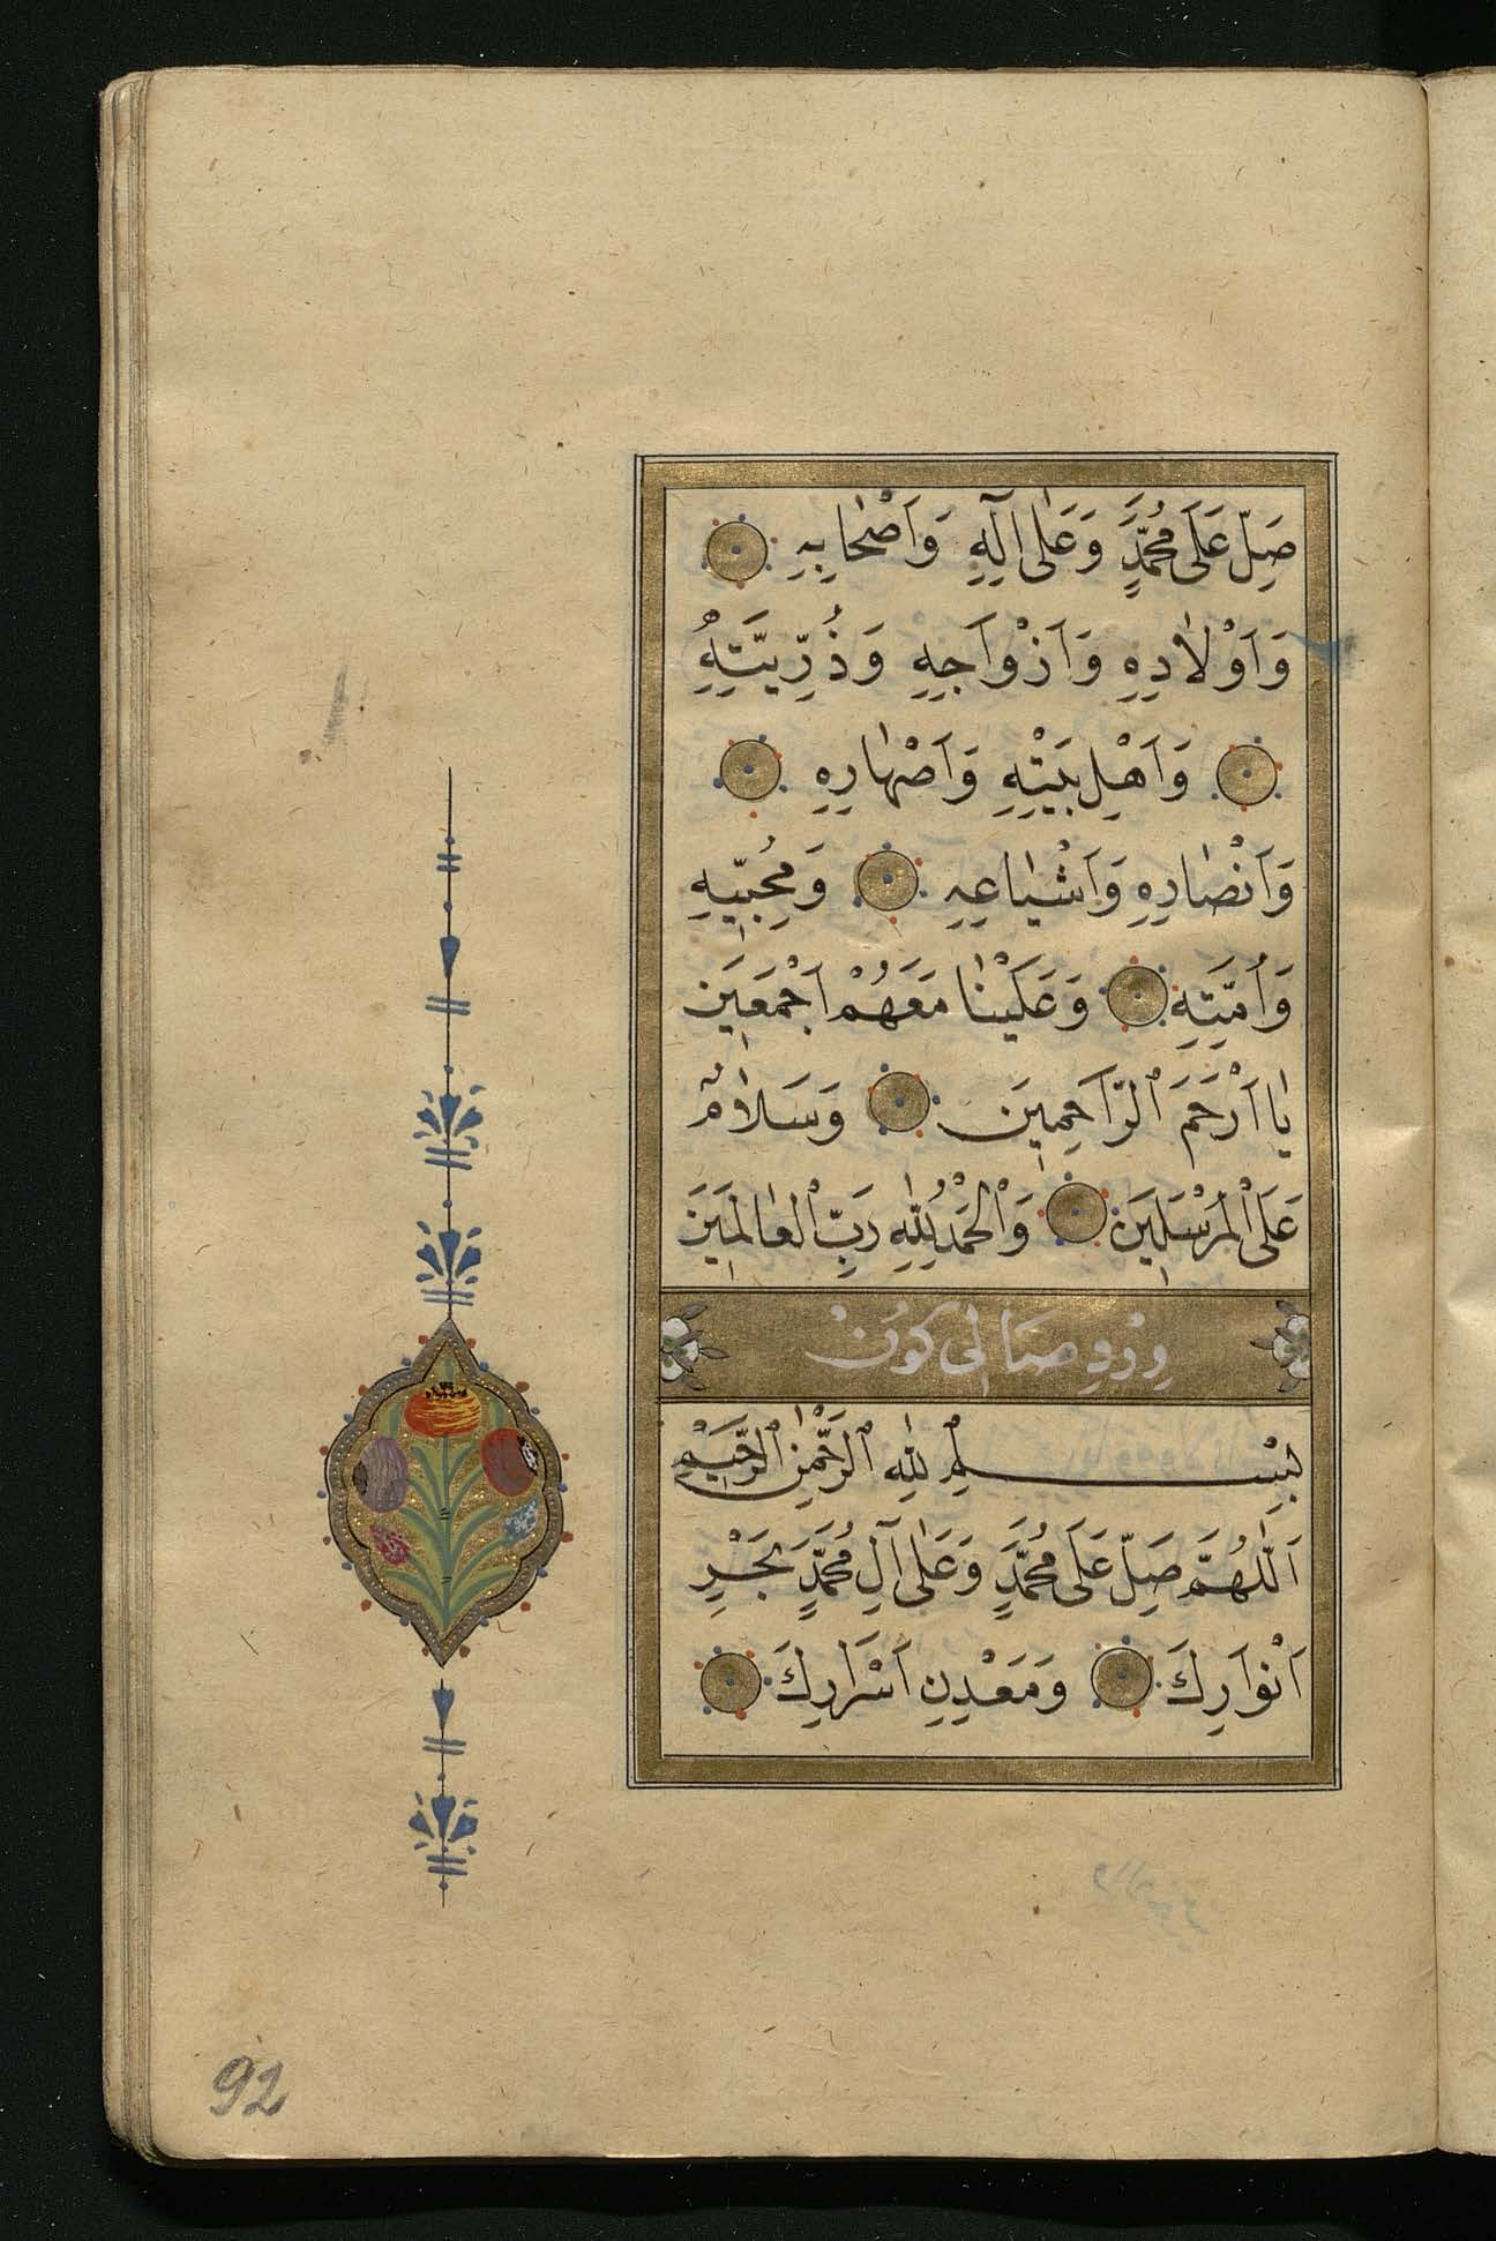 صَلِّ عَلَى مُحَمَّدٍ وَعَلٰى اٰلِهِ وَاَصْحَابِهِ
وَاَوْلَادِهِ وَاَزْوَاجِهِ وَذُرِّيَّتِهِ
وَاَهْلِ بَيْتِهِ وَاَصْهَارِهِ
وَاَنْصَارِهِ وَاَشْيَاعِهِ وَمُحِبِّيهِ
وَاُمَّتِهِ وَعَلَيْنَا مَعَهُمْ اَجْمَعِينَ
يَا اَرْحَمَ الرَّاحِمِينَ وَسَلَامٌ
عَلَى الْمُرْسَلِينَ وَالْحَمْدُ لِلّٰهِ رَبِّ الْعَالَمِينَ
وِرْدِ صَالِى كُونْ
بِسْمِ اللّٰهِ الرَّحْمٰنِ الرَّحِيمِ
اَللّٰهُمَّ صَلِّ عَلَى مُحَمَّدٍ وَعَلٰى اٰلِ مُحَمَّدٍ بَحْرِ
اَنْوَارِكَ وَمَعْدِنِ اَسْرَارِكَ
92